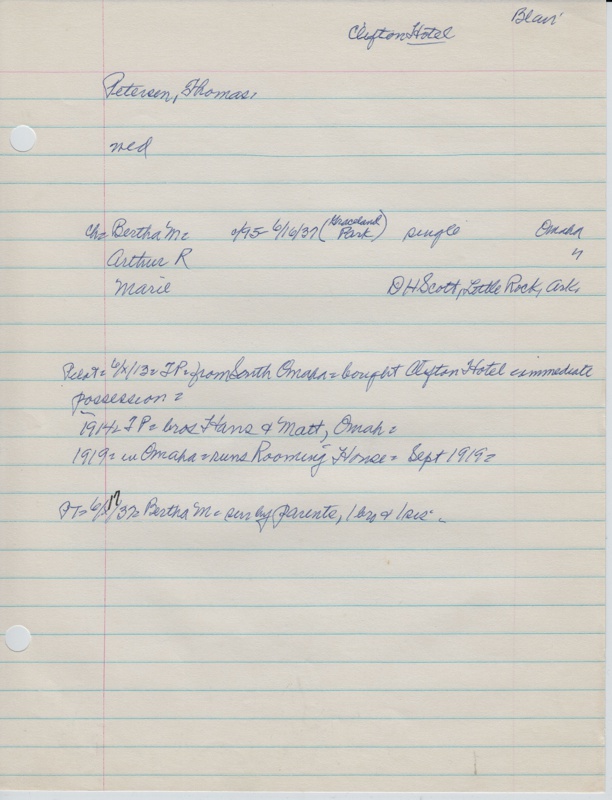 Clifton Hotel Blair
Petersen, Thomas,
wed
ch= Bertha M= 6/16/37 (Graceland Park) single Omaha
Arthur R "
Marie D H Scott, Little Rock, Ark.
Pilot= 13= TP= from South Omaha= bought Clifton Hotel immediate
possession=
1914= TP= bros Hans & Matt, Omah=
1919= in Omaha= runs Rooming House= Sept 1919=
17 37= Bertha M= sur by parents, 1 bro & 1 sis=